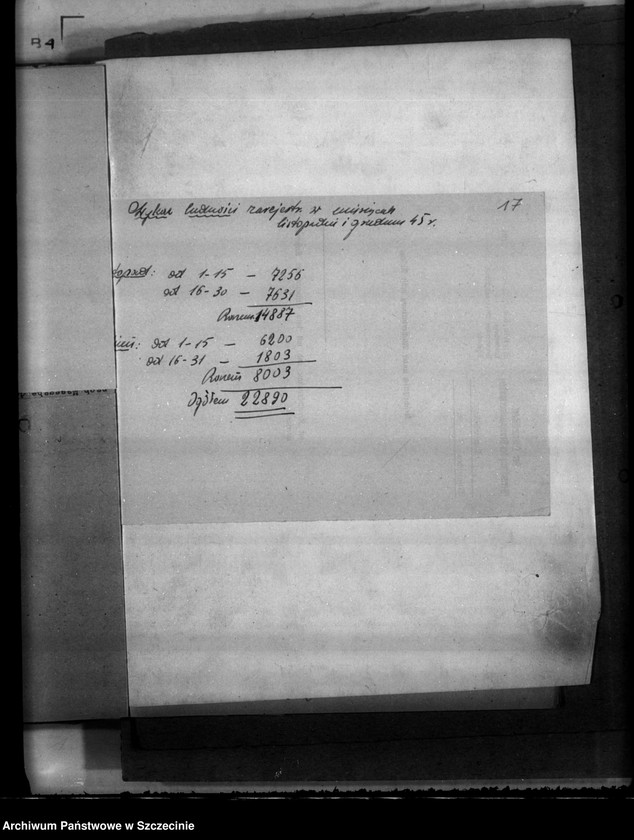 B4
17
Wykaz ludności zarejestr. w miesiącach
listopadzie i grudniu 45 r.
topad: od 1-15 – 7256
od 16-30 – 7631
Razem 14887
zień: od 1-15 – 6200
od 16-31 – 1803
Razem 8003
Ogółem 22890
Archiwum Państwowe w Szczecinie